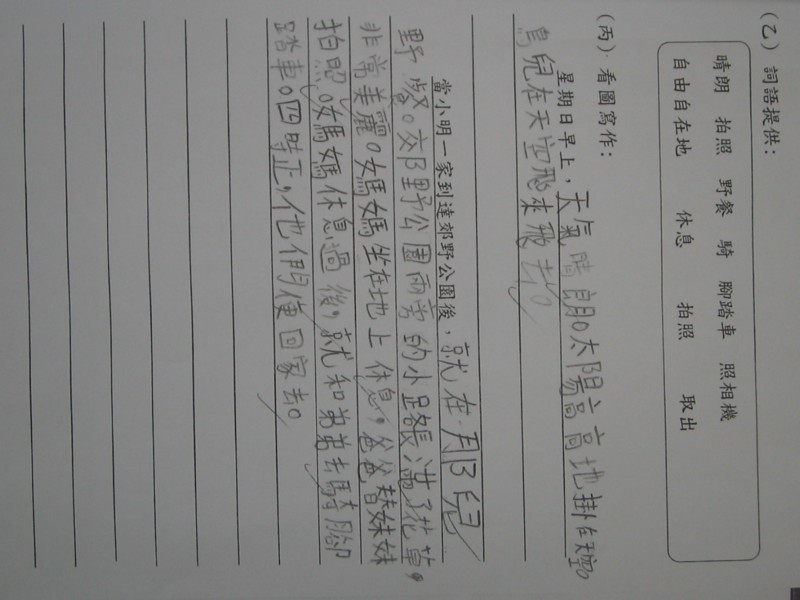 （乙）詞語提供：
晴朗　拍照　野餐　騎　腳踏車　照相機
自由自在地　休息　拍照　取出
（丙）看圖寫作：
星期日早上，天氣晴朗。太陽高高地掛在天空。
鳥兒在天空飛來飛去。
當小明一家到達郊野公園後，就在那兒
野餐。郊野公園兩旁的小路長滿了花草，
非常美麗。媽媽坐在地上休息，爸爸替妹妹
拍照。媽媽休息過後，就和弟弟去騎腳
踏車。四時正，他們便回家去。